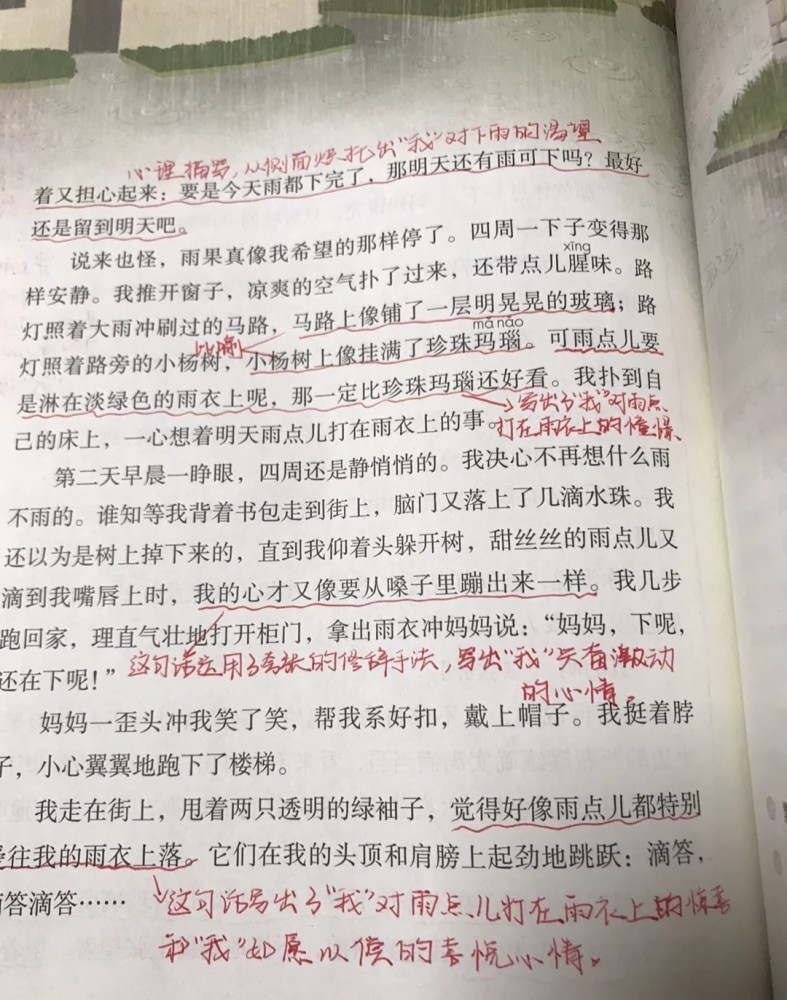 心理描写,从侧面烘托出“我”对下雨的渴望
着又担心起来:要是今天雨都下完了,那明天还有雨可下吗?最好
还是留到明天吧。
说来也怪,雨果真像我希望的那样停了。四周一下子变得那
xīng
样安静。我推开窗子,凉爽的空气扑了过来,还带点儿腥味。路
灯照着大雨冲刷过的马路,马路上像铺了一层明晃晃的玻璃;路
mǎ nǎo
比喻
灯照着路旁的小杨树,小杨树上像挂满了珍珠玛瑙。可雨点儿要
是淋在淡绿色的雨衣上呢,那一定比珍珠玛瑙还好看。我扑到自
写出了“我”对雨点
己的床上,一心想着明天雨点儿打在雨衣上的事。
打在雨衣上的憧憬
第二天早晨一睁眼,四周还是静悄悄的。我决心不再想什么雨
不雨的。谁知等我背着书包走到街上,脑门又落上了几滴水珠。我
还以为是树上掉下来的,直到我仰着头躲开树,甜丝丝的雨点儿又
滴到我嘴唇上时,我的心才又像要从嗓子里蹦出来一样。我几步
跑回家,理直气壮地打开柜门,拿出雨衣冲妈妈说:“妈妈,下呢,
还在下呢!”
这句话运用了夸张的修辞手法,写出“我”兴奋激动
的心情。
妈妈一歪头冲我笑了笑,帮我系好扣,戴上帽子。我挺着脖
子,小心翼翼地跑下了楼梯。
我走在街上,甩着两只透明的绿袖子,觉得好像雨点儿都特别
爱往我的雨衣上落。它们在我的头顶和肩膀上起劲地跳跃:滴答,
滴答滴答……
这句话写出了“我”对雨点儿打在雨衣上的惊喜
和“我”如愿以偿的喜悦心情。